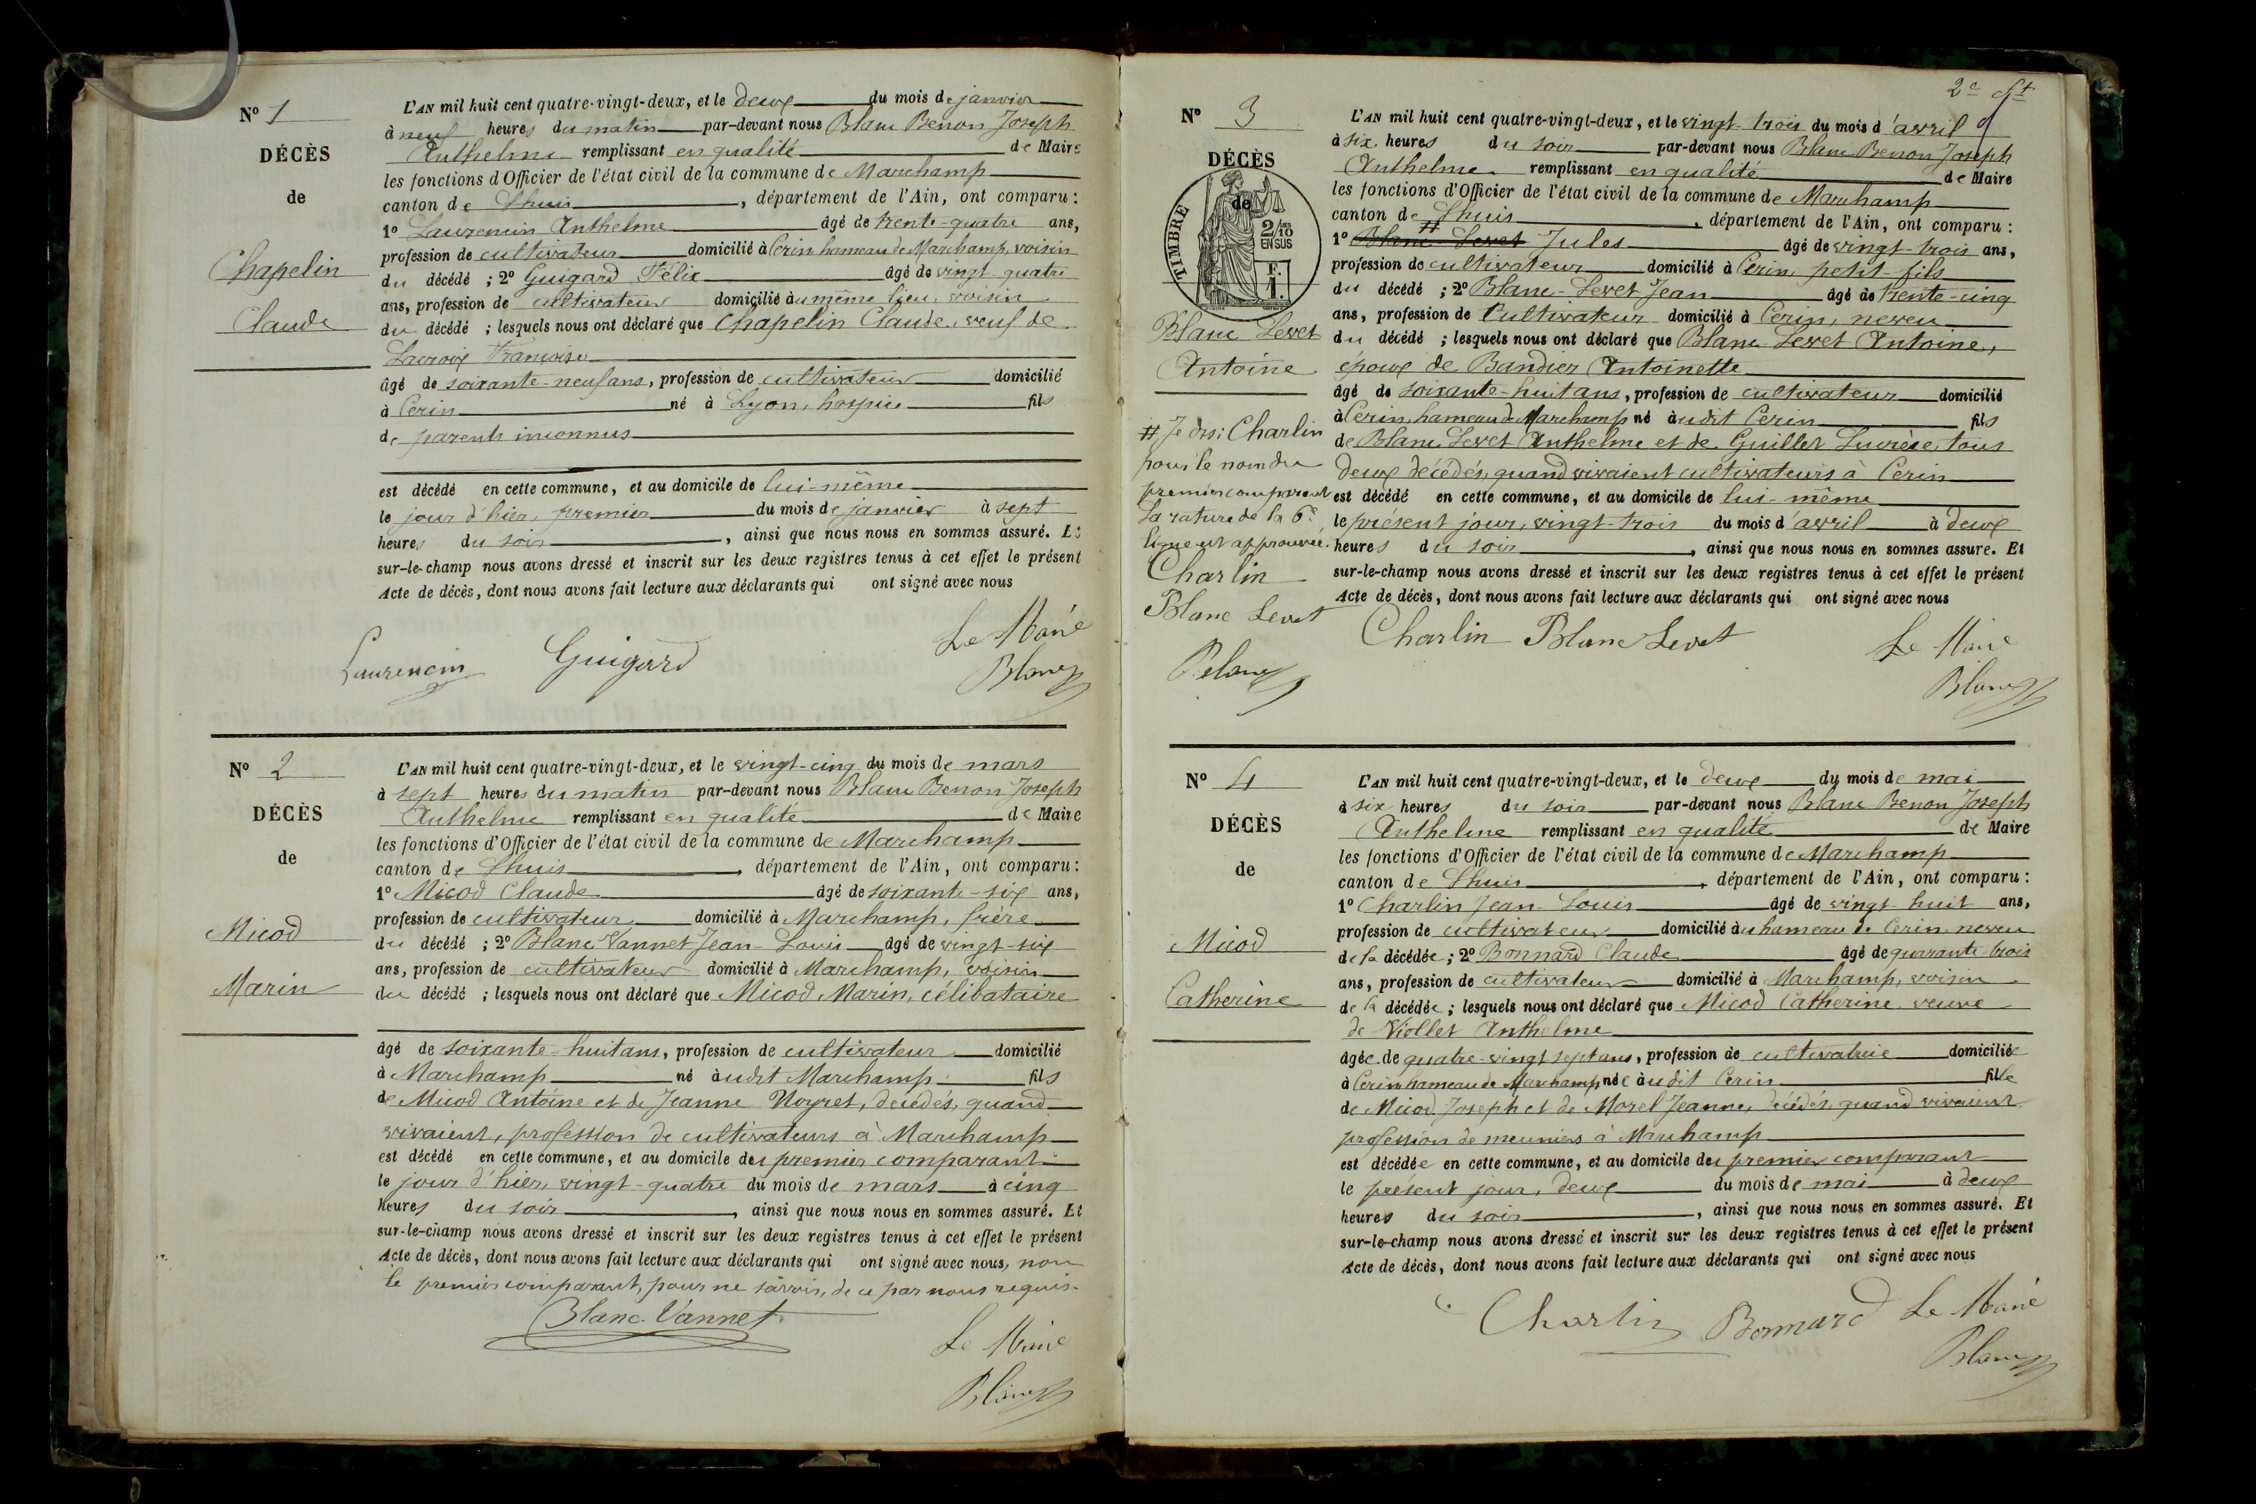 N° 1
DÉCÈS
de
Chapelin
Claude
L'AN mil huit cent quatre-vingt-deux, et le deux du mois de janvier
à neuf heures du matin par-devant nous Blanc Benon Joseph
Anthelme remplissant en qualité de Maire
les fonctions d'Officier de l'état civil de la commune de Marchamp
canton de Lhuis, département de l'Ain, ont comparu :
1° Laurencin Anthelme âgé de trente-quatre ans,
profession de cultivateur domicilié à Cerin hameau de Marchamp, voisin
du décédé ; 2° Guigard Félix âgé de vingt-quatre
ans, profession de cultivateur domicilié au même lieu, voisin
du décédé ; lesquels nous ont déclaré que Chapelin Claude, veuf de
Lacroix Françoise
âgé de soixante-neuf ans, profession de cultivateur domicilié
à Cerin né à Lyon, hospice fils
de parents inconnus
est décédé en cette commune, et au domicile de lui-même
le jour d'hier, premier du mois de janvier à sept
heures du soir, ainsi que nous nous en sommes assuré. Et
sur-le-champ nous avons dressé et inscrit sur les deux registres tenus à cet effet le présent
Acte de décès, dont nous avons fait lecture aux déclarants qui ont signé avec nous
Laurencin Guigard Le Maire
Blanc
N° 2
DÉCÈS
de
Micod
Marin
L'AN mil huit cent quatre-vingt-deux, et le vingt-cinq du mois de mars
à sept heures du matin par-devant nous Blanc Benon Joseph
Anthelme remplissant en qualité de Maire
les fonctions d'Officier de l'état civil de la commune de Marchamp
canton de Lhuis, département de l'Ain, ont comparu :
1° Micod Claude âgé de soixante-six ans,
profession de cultivateur domicilié à Marchamp, frère
du décédé ; 2° Blanc Vannet Jean-Louis âgé de vingt-six
ans, profession de cultivateur domicilié à Marchamp, voisin
du décédé ; lesquels nous ont déclaré que Micod Marin, célibataire
âgé de soixante-huit ans, profession de cultivateur domicilié
à Marchamp né audit Marchamp fils
de Micod Antoine et de Jeanne Noyret, décédés, quand
vivaient, profession de cultivateurs à Marchamp
est décédé en cette commune, et au domicile du premier comparant
le jour d'hier, vingt-quatre du mois de mars à cinq
heures du soir, ainsi que nous nous en sommes assuré. Et
sur-le-champ nous avons dressé et inscrit sur les deux registres tenus à cet effet le présent
Acte de décès, dont nous avons fait lecture aux déclarants qui ont signé avec nous, non
le premier comparant, pour ne savoir, de ce par nous requis.
Blanc-Vannet
Le Maire
Blanc
2e
N° 3
DÉCÈS
de
TIMBRE
2/10
EN SUS
F.
1.
Blanc Levet
Antoine
# Je dis : Charlin
pour le nom du
premier comparant
La rature de la 6e
ligne est approuvée.
Charlin
Blanc Levet
Blanc
L'AN mil huit cent quatre-vingt-deux, et le vingt-trois du mois d'avril
à six heures du soir par-devant nous Blanc Benon Joseph
Anthelme remplissant en qualité de Maire
les fonctions d'Officier de l'état civil de la commune de Marchamp
canton de Lhuis, département de l'Ain, ont comparu :
1° # Blanc Levet Jules âgé de vingt-trois ans,
profession de cultivateur domicilié à Cerin, petit-fils
du décédé ; 2° Blanc-Levet Jean âgé de trente-cinq
ans, profession de Cultivateur domicilié à Cerin, neveu
du décédé ; lesquels nous ont déclaré que Blanc Levet Antoine,
époux de Bandier Antoinette
âgé de soixante-huit ans, profession de cultivateur domicilié
à Cerin, hameau de Marchamp né audit Cerin fils
de Blanc Levet Anthelme et de Guillet Lucrèce, tous
deux décédés, quand vivaient cultivateurs à Cerin
est décédé en cette commune, et au domicile de lui-même
le présent jour, vingt-trois du mois d'avril à deux
heures du soir, ainsi que nous nous en sommes assuré. Et
sur-le-champ nous avons dressé et inscrit sur les deux registres tenus à cet effet le présent
Acte de décès, dont nous avons fait lecture aux déclarants qui ont signé avec nous
Charlin Blanc Levet Le Maire
Blanc
N° 4
DÉCÈS
de
Micod
Catherine
L'AN mil huit cent quatre-vingt-deux, et le deux du mois de mai
à six heures du soir par-devant nous Blanc Benon Joseph
Anthelme remplissant en qualité de Maire
les fonctions d'Officier de l'état civil de la commune de Marchamp
canton de Lhuis, département de l'Ain, ont comparu :
1° Charlin Jean-Louis âgé de vingt-huit ans,
profession de cultivateur domicilié au hameau de Cerin, neveu
de la décédée ; 2° Bonnard Claude âgé de quarante-trois
ans, profession de cultivateur domicilié à Marchamp, voisin
de la décédée ; lesquels nous ont déclaré que Micod Catherine, veuve
de Viollet Anthelme
âgée de quatre-vingt sept ans, profession de cultivatrice domiciliée
à Cerin hameau de Marchamp née audit Cerin fille
de Micod Joseph et de Morel Jeanne, décédés, quand vivaient
profession de meuniers à Marchamp
est décédée en cette commune, et au domicile du premier comparant
le présent jour, deux du mois de mai à deux
heures du soir, ainsi que nous nous en sommes assuré. Et
sur-le-champ nous avons dressé et inscrit sur les deux registres tenus à cet effet le présent
Acte de décès, dont nous avons fait lecture aux déclarants qui ont signé avec nous
Charlin Bonnard Le Maire
Blanc